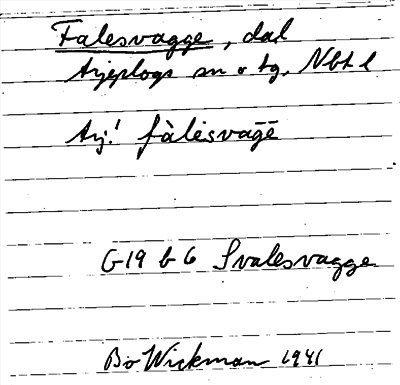 Falesvagge, dal
Arjeplogs sn o tg, Nbt l
Arj! fàlèsvāgē
G19 b6 Svalesvagge
Bo Wickman 1941